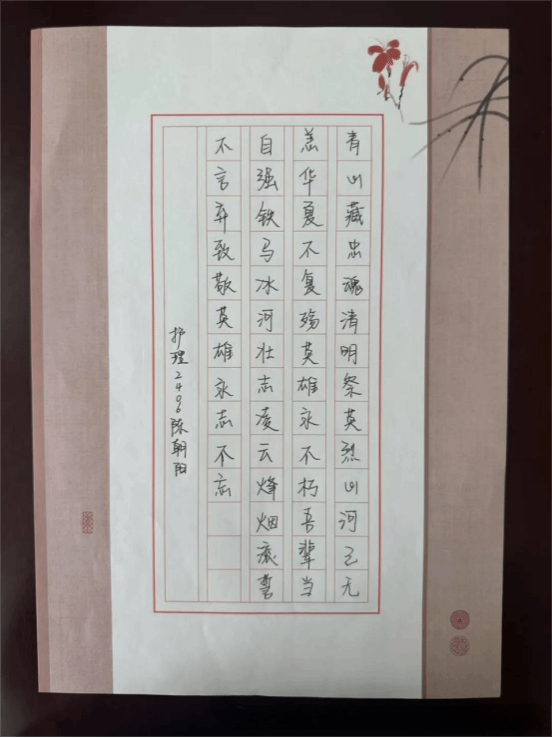 青山藏忠魂清明祭英烈山河已无
恙华夏不复殇英雄永不朽吾辈当
自强铁马冰河壮志凌云烽烟痕誓
不言弃致敬英雄永志不忘
护理2406陈朝阳